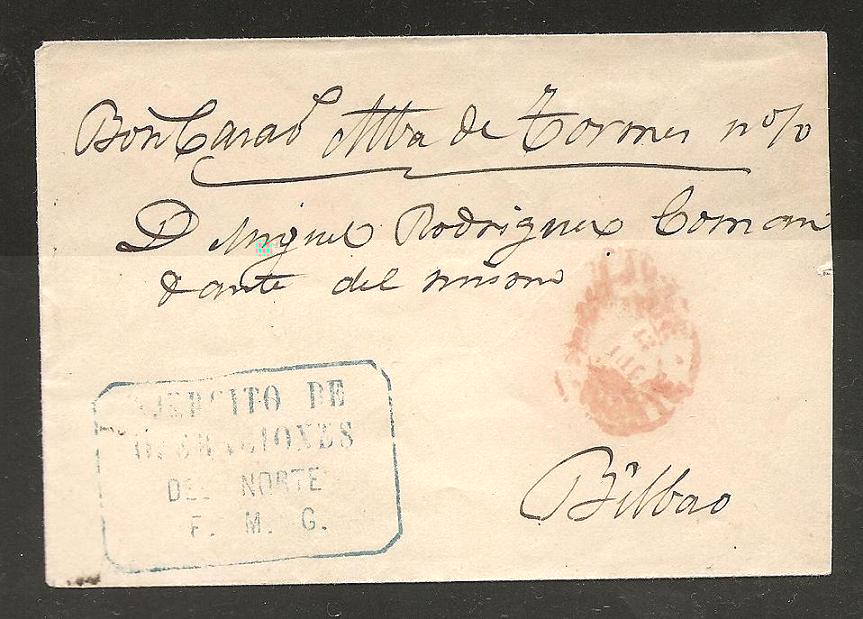 Bon Cazad Alba de Tormes nº 10
D Miguel Rodriguez Coman
dante del mismo
EJERCITO DE
OPERACIONES
DEL NORTE
F. M. G.
Bilbao